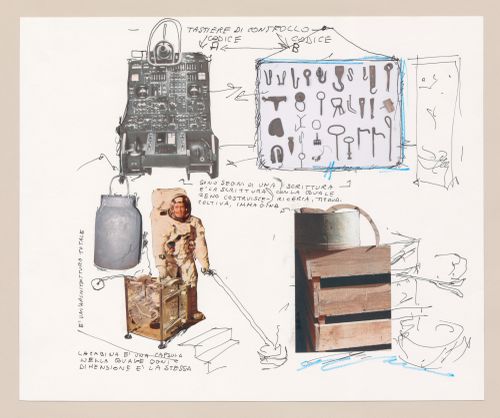 TASTIERE DI CONTROLLO
CODICE CODICE
A B
SONO SEGNI DI UNA SCRITTURA
È LA SCRITTURA CON LA QUALE
ZENO COSTRUISCE, RICERCA,
COLTIVA, IMMAGINA
È UN'ARCHITETTURA TOTALE
LA CABINA È UNA CAPSULA
NELLA QUALE OGNI
DIMENSIONE È LA STESSA